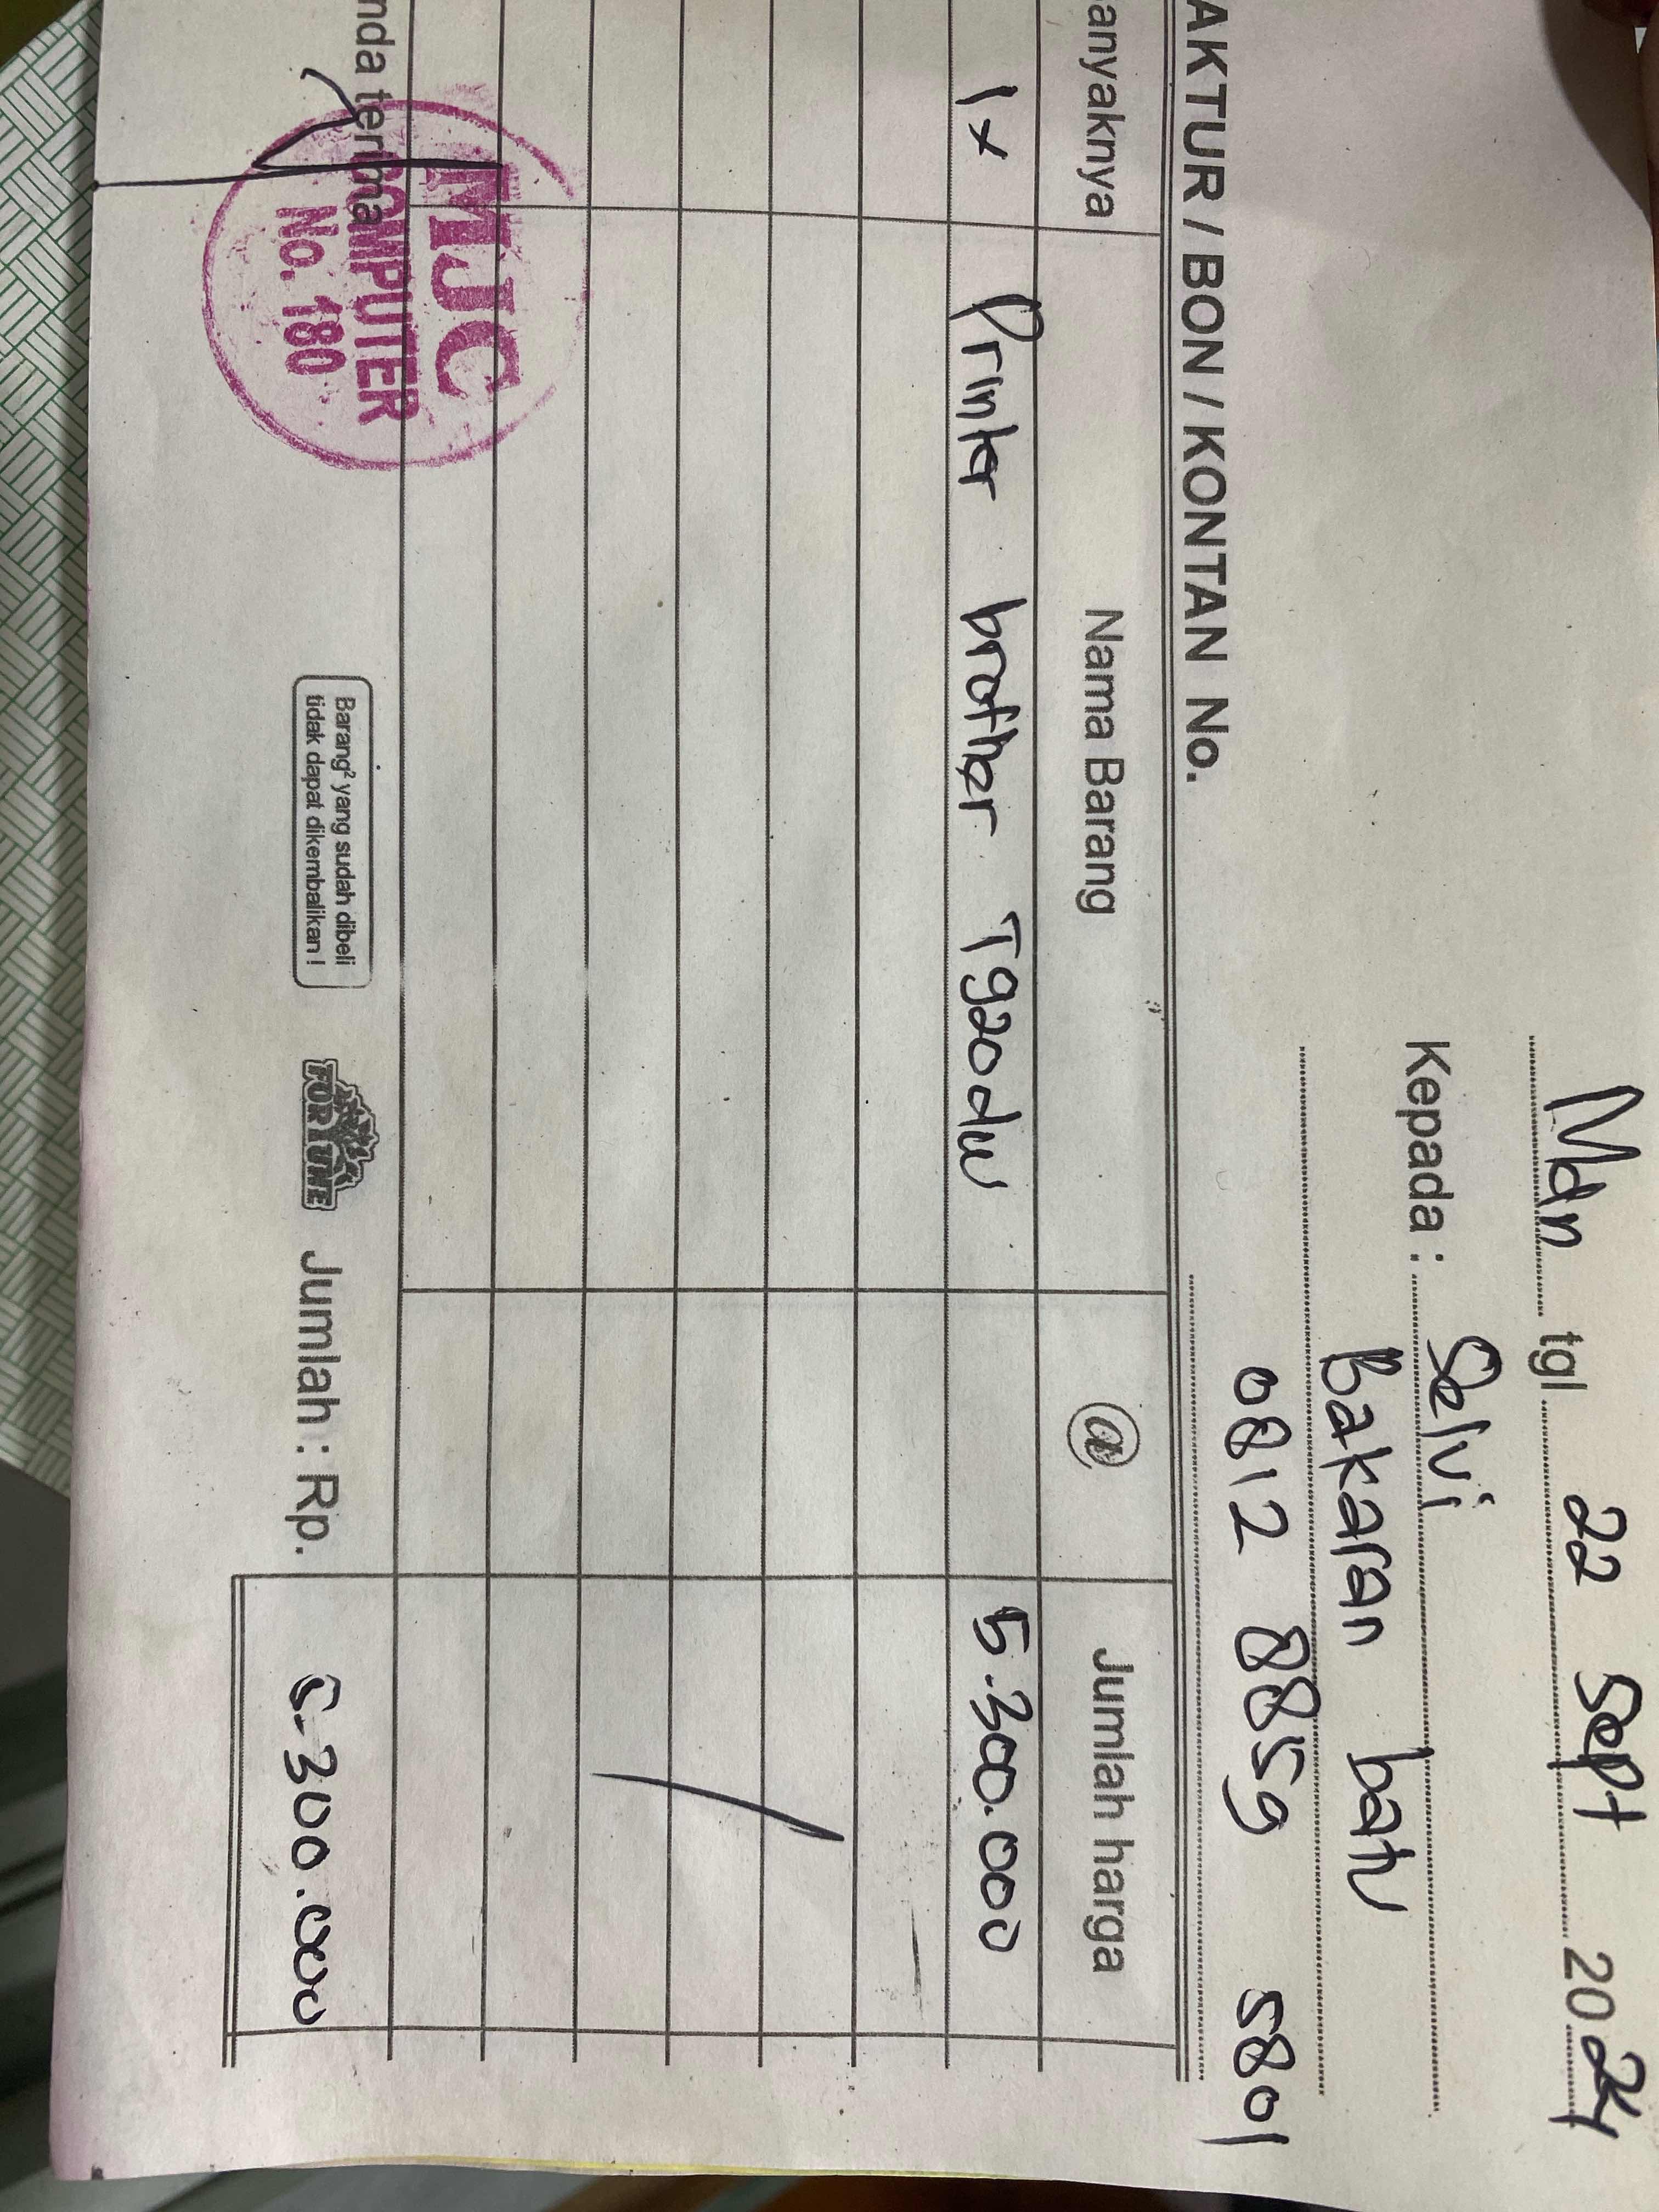 Mdn tgl 22 Sept 2024
Kepada : Selvi
Bakaran batu
0812 8859 5801
AKTUR / BON / KONTAN No.
anyaknya Nama Barang @ Jumlah harga
1x Printer brother T920dw 5.300.000
nda terima
MJC
COMPUTER
No. 180
Barang² yang sudah dibeli
tidak dapat dikembalikan !
FORTUNE
Jumlah : Rp. 5.300.000